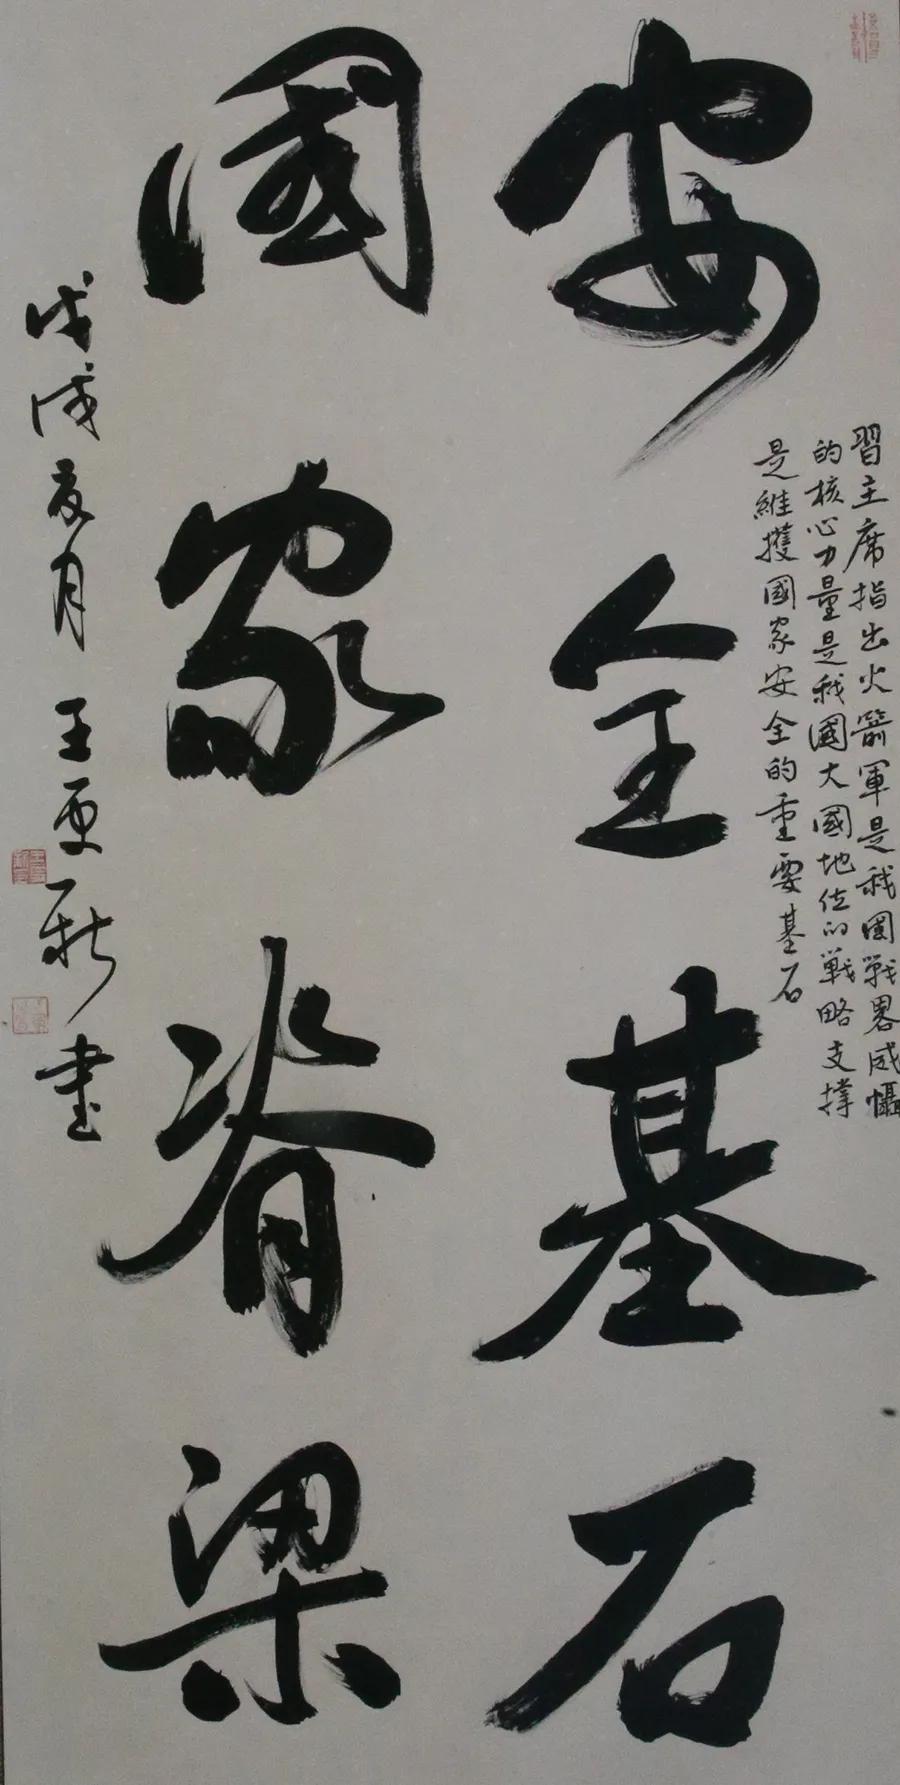 習主席指出火箭軍是我國戰畧威懾
的核心力量是我國大國地位的戰略支撑
是維擭國家安全的重要基石
安全基石
國家脊梁
戊戌夏月 王更新書